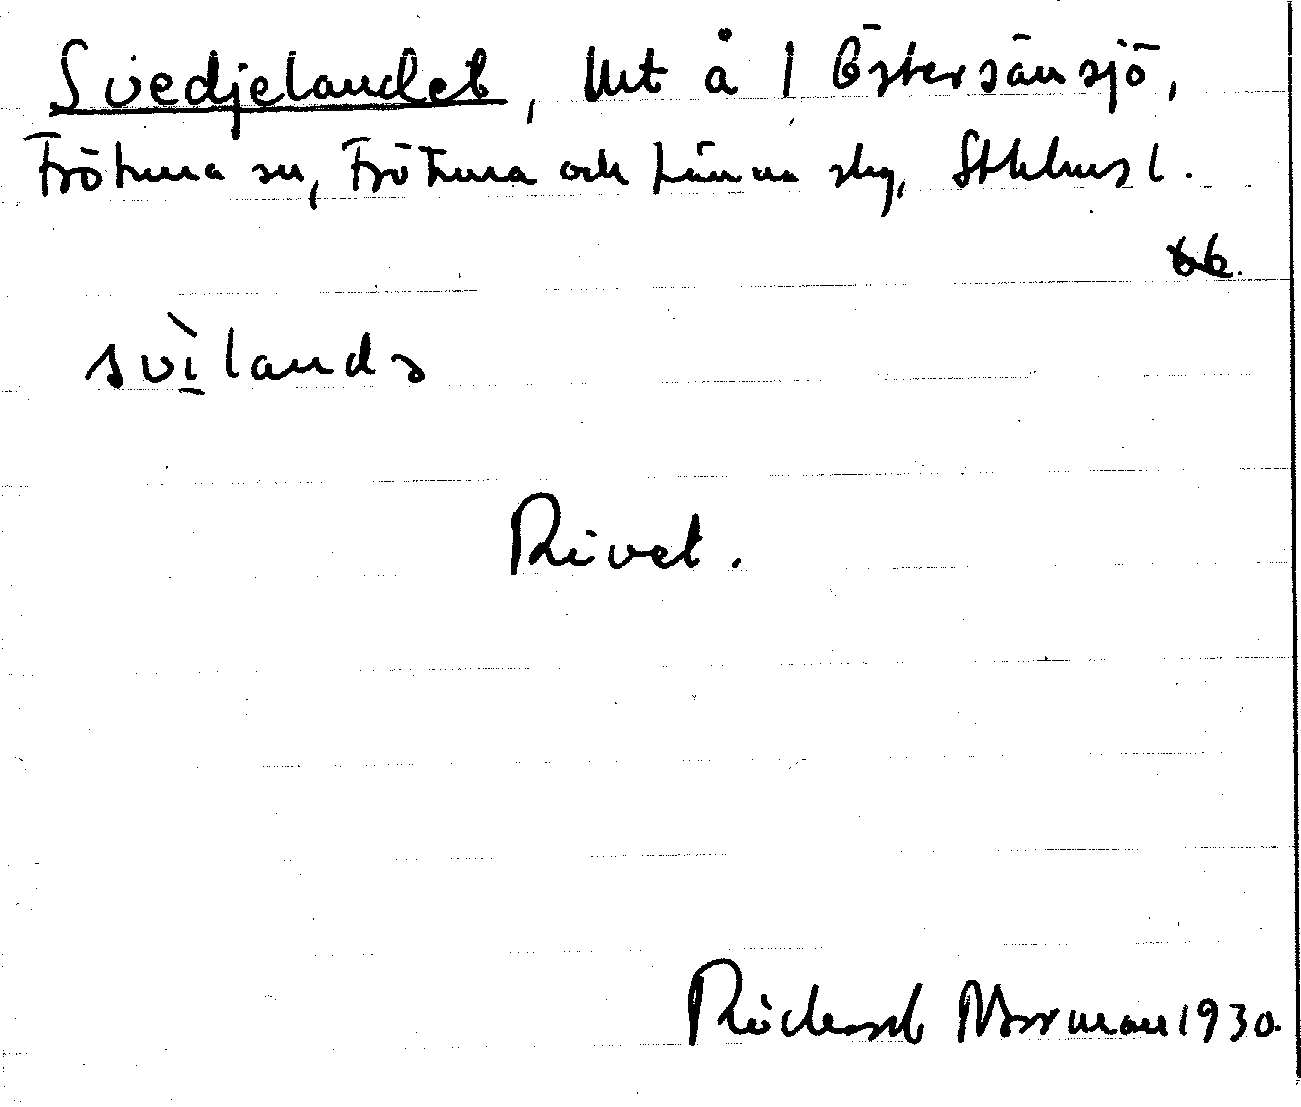 Svedjelandet, Urt å 1 Östersänsjö,
Frötuna sn, Frötuna och Länna skg, Sthlms l.
svìlandə
Rivet.
Richard Norman 1930.